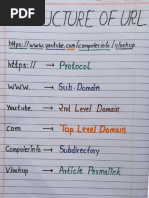 RUCTURE OF URL
https://www.youtube.com/computerinfo/vlookup
https:// → Protocol
www. → Sub-Domain
Youtube. → 2nd Level Domain
com → Top Level Domain
Computerinfo → Subdirectory
Vlookup → Article Permalink